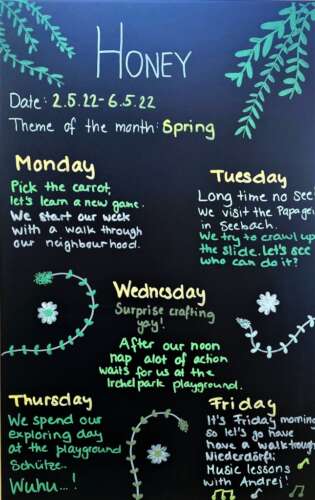 HONEY
Date: 2.5.22-6.5.22
Theme of the month: Spring
Monday
Pick the carrot,
let's learn a new game.
We start our week
with a walk through
our neighbourhood.
Tuesday
Long time no see!
We visit the Papagei
in Seebach.
We try to crawl up
the slide. let's see
who can do it?
Wednesday
Surprise crafting
yay!
After our noon
nap alot of action
waits for us at the
Irchelpark playground.
Thursday
We spend our
exploring day
at the playground
Schütze..
Wuhu...!
Friday
It's Friday morning
so let's go have
have a walk trough
Niederdörfli
Music lessons
with Andrej!